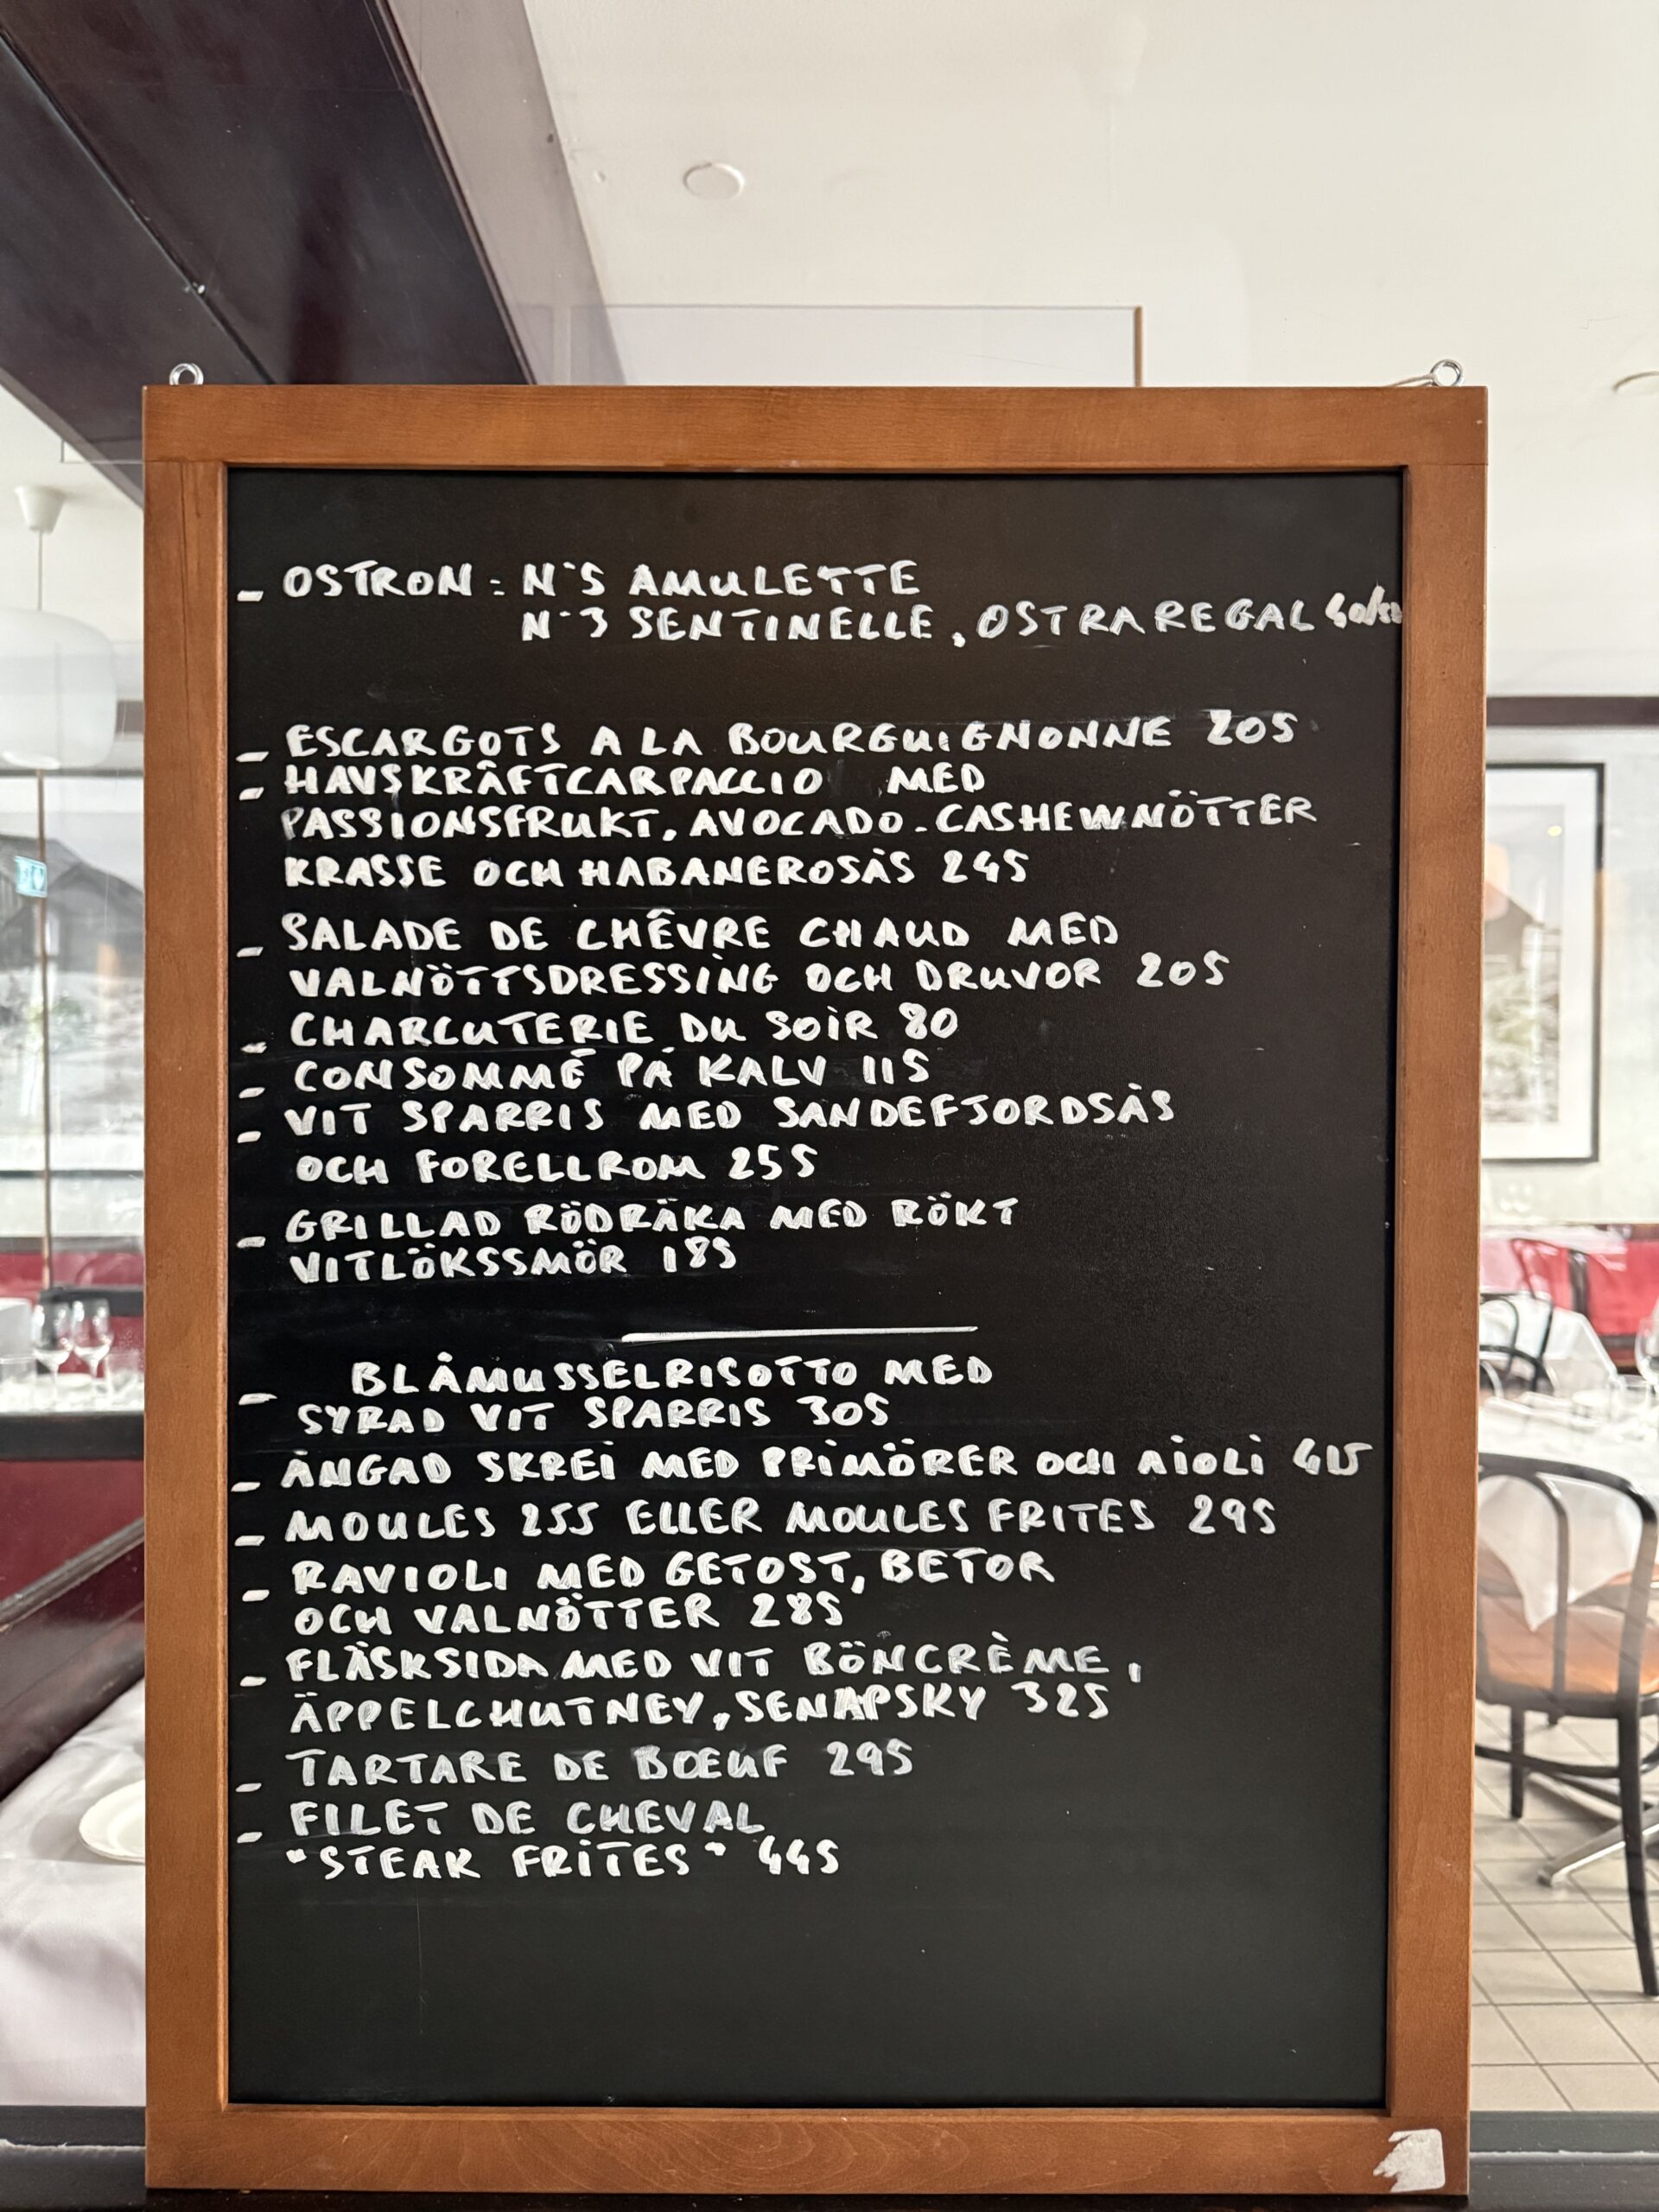 - OSTRON: N°5 AMULETTE
N°3 SENTINELLE, OSTRA REGAL
- ESCARGOTS A LA BOURGUIGNONNE 205
- HAVSKRÄFTCARPACCIO MED
PASSIONSFRUKT, AVOCADO - CASHEWNÖTTER
KRASSE OCH HABANEROSÅS 245
- SALADE DE CHÊVRE CHAUD MED
VALNÖTTSDRESSING OCH DRUVOR 205
- CHARCUTERIE DU SOIR 80
- CONSOMMÉ PÅ KALV 115
- VIT SPARRIS MED SANDEFJORDSÅS
OCH FORELLROM 255
- GRILLAD RÖDRÄKA MED RÖKT
VITLÖKSSMÖR 185
- BLÅMUSSELRISOTTO MED
SYRAD VIT SPARRIS 305
- ÅNGAD SKREI MED PRIMÖRER OCH AIOLI 415
- MOULES 255 ELLER MOULES FRITES 295
- RAVIOLI MED GETOST, BETOR
OCH VALNÖTTER 285
- FLÄSKSIDA MED VIT BÖNCRÈME,
ÄPPELCHUTNEY, SENAPSKY 325
- TARTARE DE BŒUF 295
- FILET DE CHEVAL
"STEAK FRITES" 445